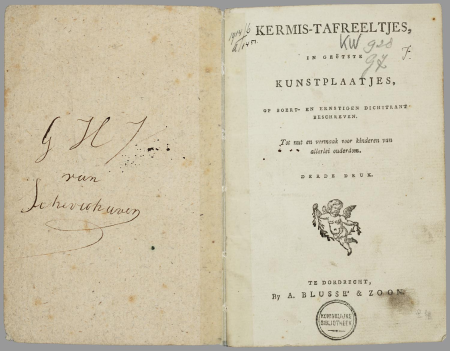 G H J
van
Schoonhoven
KERMIS-TAFREELTJES,
IN GEËTSTE
KUNSTPLAATJES,
OP BOERT- EN ERNSTIGEN DICHTTRANT
BESCHREVEN.
Tot nut en vermaak voor kinderen van
allerlei ouderdom.
DERDE DRUK.
TE DORDRECHT,
By A. BLUSSÉ & ZOON.
KONINKLIJKE
BIBLIOTHEEK
KW 928